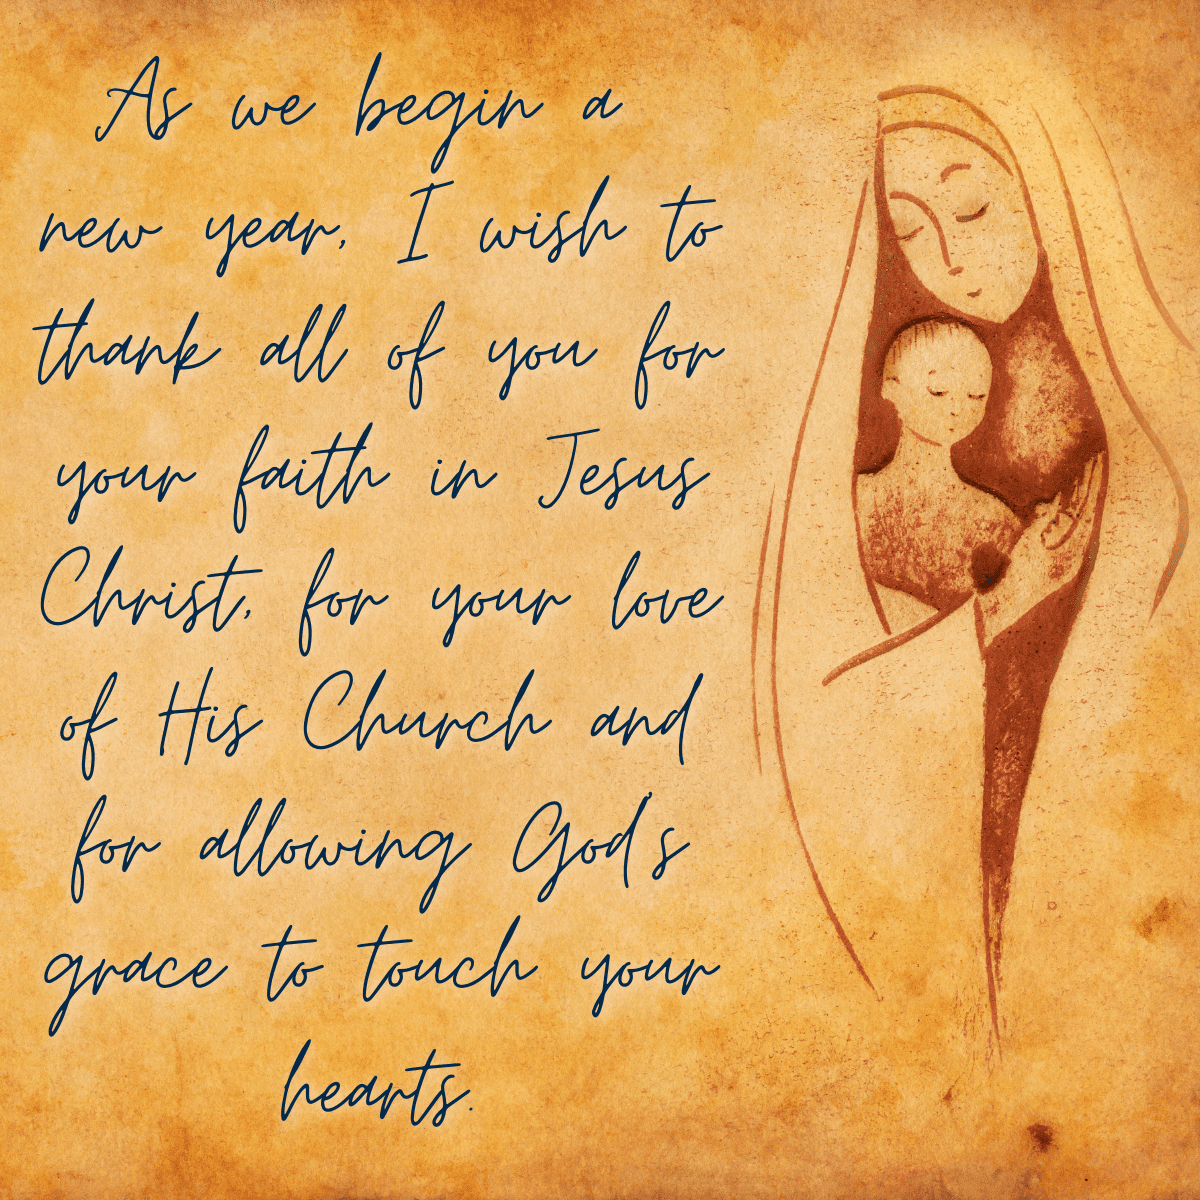 As we begin a
new year, I wish to
thank all of you for
your faith in Jesus
Christ, for your love
of His Church and
for allowing God's
grace to touch your
hearts.